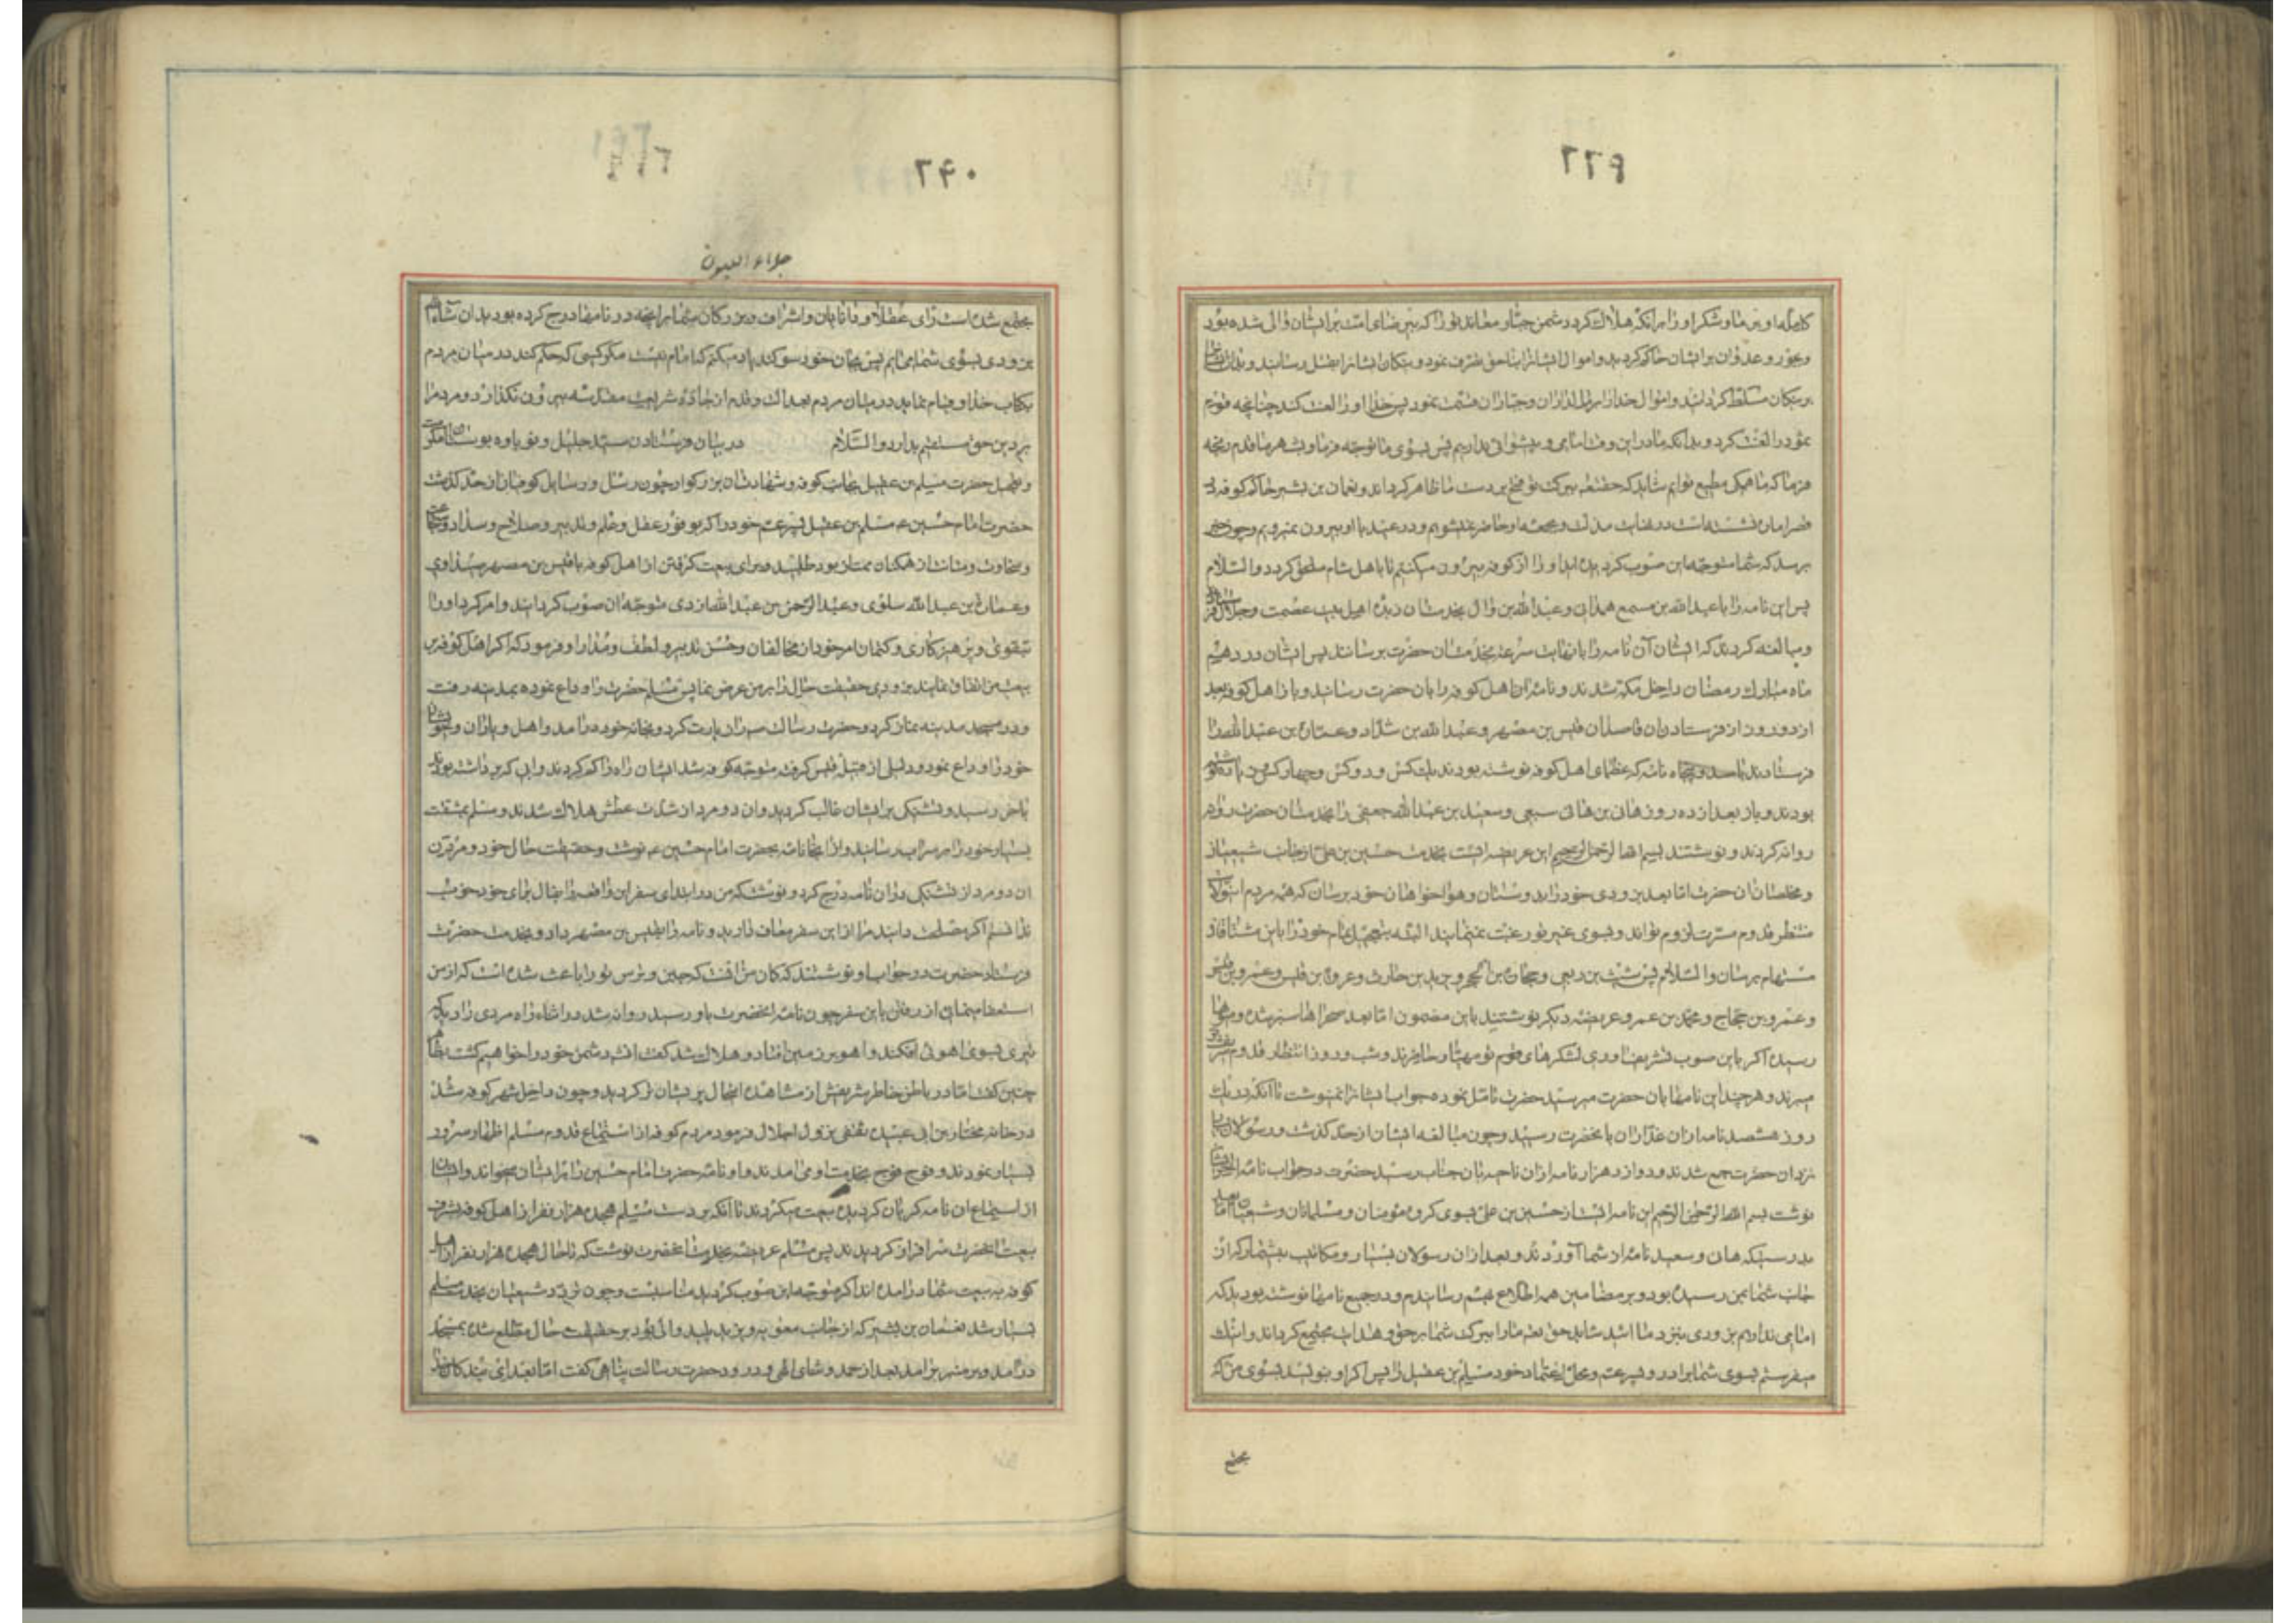 ۲۳۹
کامله او بر ما و شکر او را بر آنکه هلاک کرد دشمن جبار و معاند تو را که بی رضای امت بر ایشان والی شده بود
و بجور و عدوان بر ایشان حاکم گردید و اموال ایشانرا بناحق تصرف نمود و نیکان ایشانرا بقتل رسانید و بدان ایشانرا
بر نیکان مسلط گردانید و اموال خدا را بر مالداران و جباران قسمت نمود پس خدا او را لعنت کند چنانچه قوم
ثمود را لعنت کرد و بدانکه ما در این وقت امامی و پیشوائی نداریم پس بسوی ما توجه فرما و بشهر ما قدم رنجه
فرما که ما همگی مطیع توایم شاید که حقتعالی ببرکت تو حق را بر دست ما ظاهر گرداند و نعمان بن بشیر حاکم کوفه در
قصر امارت نشسته است در نهایت مذلت و بجمعه او حاضر نمیشویم و در عید با او بیرون نمیرویم و چون خبر
برسد که شما متوجه این صوب گردیده اید او را از کوفه بیرون میکنیم تا باهل شام ملحق گردد والسلام
پس این نامه را با عبدالله بن مسمع همدانی و عبدالله بن وال بخدمت آن دیده اهل بیت عصمت و جلال فرستادند
و مبالغه کردند که ایشان آن نامه را بانهایت سرعت بخدمت آن حضرت برسانند پس ایشان در دهم
ماه مبارک رمضان داخل مکه شدند و نامه آن اهل کوفه را بان حضرت رسانیدند و باز اهل کوفه بعد
از دو روز از فرستادن آن قاصدان قیس بن مصهر و عبدالله بن شداد و عمارة بن عبدالله را
فرستادند با صد و پنجاه نامه که عظمای اهل کوفه نوشته بودند یک کس و دو کس و چهار کس و زیاده نوشته
بودند و باز بعد از دو روز هانی بن هانی سبیعی و سعید بن عبدالله حنفی را بخدمت آن حضرت
روانه کردند و نوشتند بسم الله الرحمن الرحیم این عریضه ایست بخدمت حسین بن علی از جانب شیعیان
و مخلصان آن حضرت اما بعد بزودی خود را بدوستان و هواخواهان خود برسان که همه مردم این ولایت
منتظر قدوم مسرت لزوم تواند و بسوی غیر تو رغبت نمینمایند البته بتعجیل تمام خود را باین مشتاقان
مستهام برسان والسلام پس شبث بن ربعی و حجار بن ابجر و یزید بن حارث و عروة بن قیس و
عمرو بن حجاج و محمد بن عمرو عریضه دیگر نوشتند باین مضمون اما بعد صحراها سبز شده و میوه ها
رسیده اگر باین صوب تشریف آوری لشکرهای قوم تو مهیا و حاضرند و شب و روز انتظار قدوم
میبرند و هر چند این نامها بان حضرت میرسید حضرت تامل نموده جواب ایشانرا نمینوشت تا آنکه در یک
روز ششصد نامه از آن غداران بآنحضرت رسید و چون مبالغه ایشان از حد گذشت و رسولان
نزد آن حضرت جمع شدند و دوازده هزار نامه از آن ناحیه بآن جناب رسید حضرت در جواب نامه آخر ایشان
نوشت بسم الله الرحمن الرحیم این نامه ایست از حسین بن علی بسوی گروه مؤمنان و مسلمانان و شیعیان اما بعد
بدرستیکه هانی و سعید نامه از شما آوردند و بعد از آن رسولان بسیار و مکاتیب بیشمار که از
جانب شما بمن رسیده بود و بر مضامین همه اطلاع بهم رسانیدم و در جمیع نامها نوشته بودید که
امامی نداریم بزودی بنزد ما بیا شاید حق تعالی ما را ببرکت شما بر حق و هدایت مجتمع گرداند و اینک
میفرستم بسوی شما برادر و پسر عم و محل اعتماد خود مسلم بن عقیل را پس اگر او بنویسد بسوی من که
مجتمع
۲۴۰
جلاء العیون
مجتمع شده است رای عقلا و دانایان و اشراف و بزرگان شما بر آنچه در نامها درج کرده بودید انشاءالله
بزودی بسوی شما میایم پس بجان خود سوگند یاد میکنم که امام نیست مگر کسی که حکم کند در میان مردم
بکتاب خدا و قیام نماید در میان مردم بعدالت و قدم از جاده شریعت مقدسه بیرون نگذارد و مردم را
بر دین حق مستقیم بدارد والسلام در بیان فرستادن سید جلیل
حضرت مسلم بن عقیل بجانب کوفه و شهادت آن بزرگوار چون رسل و رسایل کوفیان از حد گذشت
حضرت امام حسین ع مسلم بن عقیل پسر عم خود را که بوفور عقل و علم و تدبیر و صلاح و سداد و شجاعت
و سخاوت و متانت از همگنان ممتاز بود طلبید و برای بیعت گرفتن از اهل کوفه با قیس بن مصهر صیداوی
و عمارة بن عبدالله سلولی و عبدالرحمن بن عبدالله ازدی متوجه آن صوب گردانید و امر کرد او را
بتقوی و پرهیزکاری و کتمان امر خود از مخالفان و حسن تدبیر و لطف و مدارا و فرمود که اگر اهل کوفه بر
بیعت من اتفاق نمایند بزودی حقیقت حال را بر من عرض نما پس مسلم حضرت را وداع نموده بمدینه رفت
و در مسجد مدینه نماز کرد و حضرت رسالت ص را زیارت کرد و بخانه خود درآمد و اهل و یاران و خویشان
خود را وداع نمود و دو دلیل از قبیله قیس گرفته متوجه کوفه شد ایشان راه را گم کردند و آبی که برداشته بودند
باخر رسید و تشنگی بر ایشان غالب گردید و آن دو مرد از شدت عطش هلاک شدند و مسلم بمشقت
بسیار خود را بر سر آب رسانید و از آنجا نامه بحضرت امام حسین ع نوشت و حقیقت حال خود و مردن
آن دو مرد از تشنگی در آن نامه درج کرد و نوشت که من در ابتدای سفر این واقعه را بفال برای خود خوب
ندانستم اگر مصلحت دانید مرا از این سفر معاف دارید و نامه را بقیس بن مصهر داد و بخدمت حضرت
فرستاد حضرت در جواب او نوشتند که گمان من آنست که جبن و ترس تو را باعث شده است که از من
استعفا مینمائی از رفتن باین سفر چون نامه آنحضرت باو رسید روانه شد در اثنای راه مردی را دید که
تیری بسوی آهوئی افکند و آهو بر زمین افتاد و هلاک شد گفت انشاءالله دشمن خود را خواهیم کشت بظاهر
چنین گفت اما در باطن خاطر شریفش از مشاهده اینحال پریشان تر گردید و چون داخل شهر کوفه شد
در خانه مختار بن ابی عبیده ثقفی نزول اجلال فرمود مردم کوفه از استماع قدوم مسلم اظهار سرور
بسیار نمودند و فوج فوج بخدمت او می آمدند و او نامه حضرت امام حسین را بر ایشان میخواند و ایشان
از استماع آن نامه گریان گردیده بیعت میکردند تا آنکه بر دست مسلم هجده هزار نفر از اهل کوفه بشرف
بیعت آنحضرت سرافراز گردیدند پس مسلم عریضه بخدمت آنحضرت نوشت که تا حال هجده هزار نفر از اهل
کوفه به بیعت شما درآمده اند اگر متوجه این صوب گردید مناسبست و چون تردد شیعیان بخدمت مسلم
بسیار شد نعمان بن بشیر که از جانب معویه و یزید پلید والی بود بر حقیقت حال مطلع شده بمسجد
درآمد و بر منبر برآمد بعد از حمد و ثنای الهی و درود حضرت رسالت پناهی گفت اما بعد ای بندگان خدا